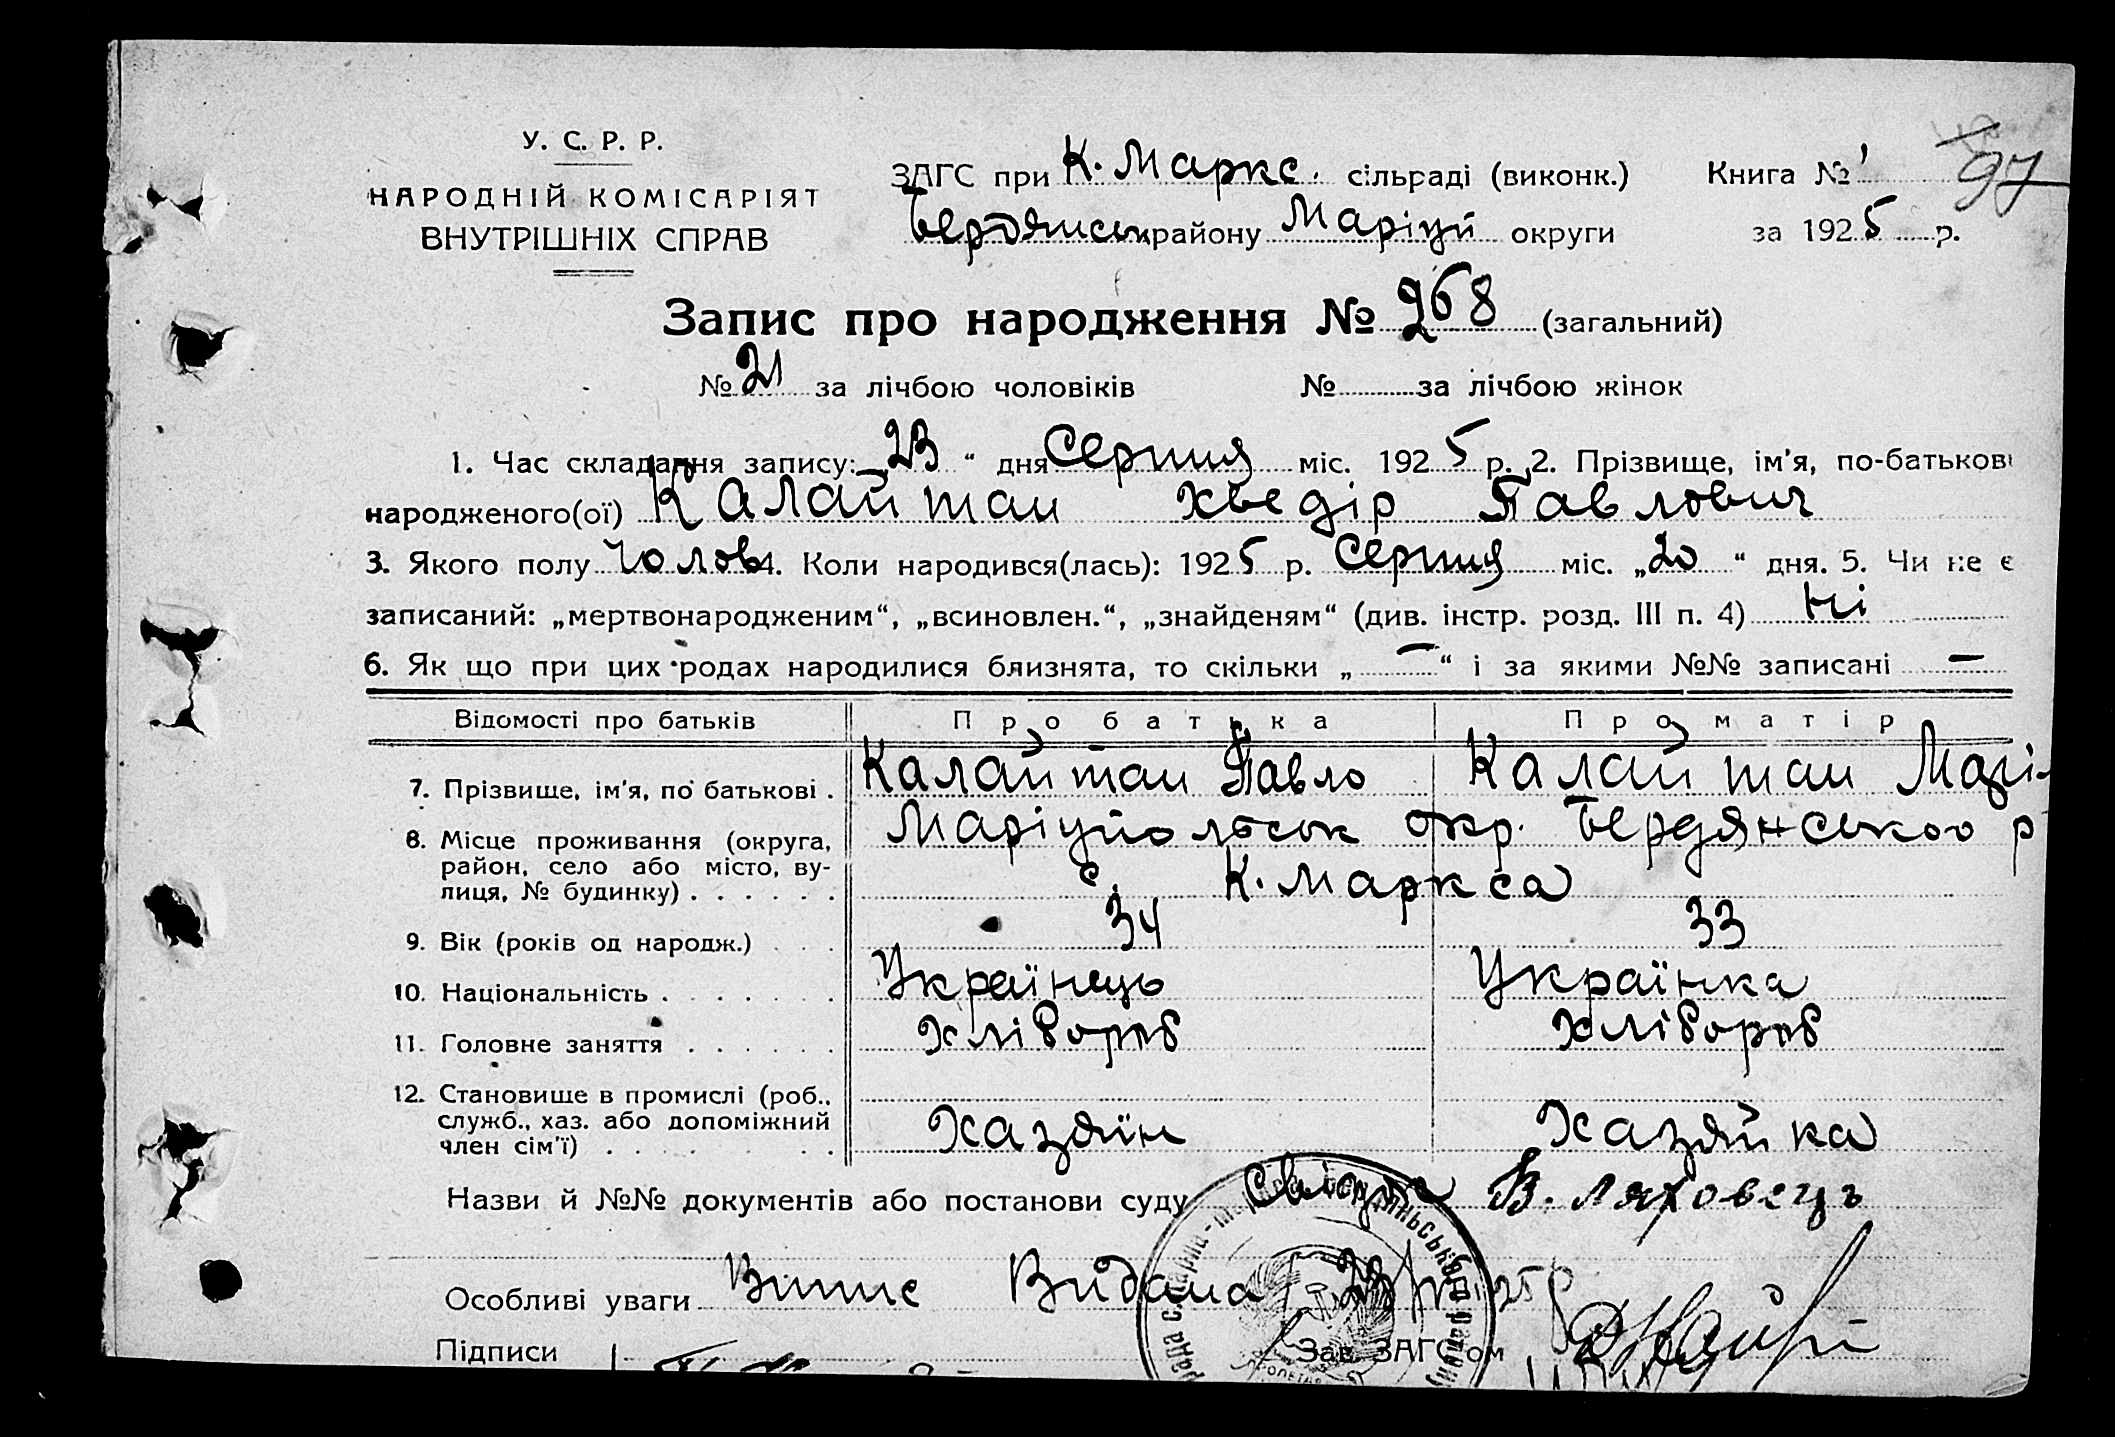 У. С. Р. Р.
НАРОДНІЙ КОМІСАРІЯТ
ВНУТРІШНІХ СПРАВ
97
ЗАГС при К. Маркс. сільраді (виконк.) Книга № 1
Бердянськ району Маріуп округи за 1925 р.
Запис про народження № 268 (загальний)
№ 21 за лічбою чоловіків № за лічбою жінок
1. Час складання запису: „23“ дня Серпня міс. 1925 р. 2. Прізвище, ім'я, по-батькові
народженого(ої) Калайтан Хведір Павлович
3. Якого полу чолов 4. Коли народився(лась): 1925 р. Серпня міс. „20“ дня. 5. Чи не є
записаний: „мертвонародженим“, „всиновлен.“, „знайденям“ (див. інстр. розд. III п. 4) Ні
6. Як що при цих родах народилися близнята, то скільки „—“ і за якими №№ записані —
Відомості про батьків Про батька Про матір
7. Прізвище, ім'я, по батькові . Калайтан Павло Калайтан Марі
8. Місце проживання (округа, район, село або місто, вулиця, № будинку) . . . . . . Маріупольськ окр. Бердянського р
с. К. Маркса
9. Вік (років од народж.) . . . 34 33
10. Національність . . . . . . . Українець Українка
11. Головне заняття . . . . . . Хлібороб Хлібороб
12. Становище в промислі (роб., служб., хаз. або допоміжний член сім'ї) . . . . . . . Хазяїн Хазяйка
Назви й №№ документів або постанови суду В. Ляховець
Особливі уваги Випис Видана
Підписи Зав. ЗАГС'ом